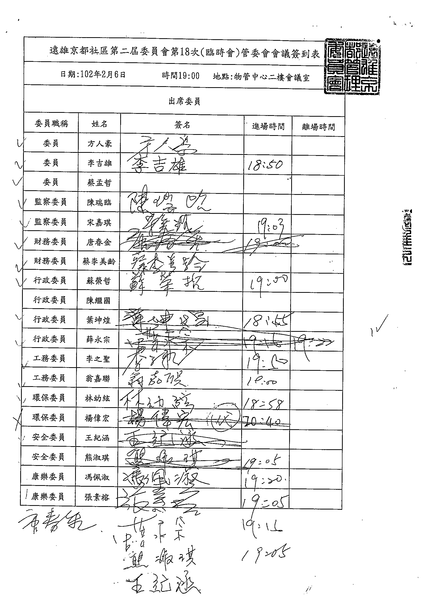 遠雄京都社區第二屆委員會第18次(臨時會)管委會會議簽到表
日期:102年2月6日 時間19:00 地點:物管中心二樓會議室
出席委員
委員職稱 姓名 簽名 進場時間 離場時間
委員 方人豪 方人豪
委員 李吉雄 李吉雄 18:50
委員 蔡孟哲
監察委員 陳瑞臨
監察委員 宋嘉琪 19:03
財務委員 唐春金
財務委員 蔡李美齡 蔡李美齡
行政委員 蘇榮哲 蘇榮哲 19:00
行政委員 陳繼國
行政委員 葉坤煌 18:45
行政委員 薛永宗
工務委員 李之聖 19:50
工務委員 翁嘉聯 19:00
環保委員 林幼紘 林幼紘 18:58
環保委員 楊偉宏 楊偉宏 20:40
安全委員 王紀涵 王紀涵
安全委員 熊淑琪 19:05
康樂委員 馮佩淑 19:20
康樂委員 張素榕 19:05
19:15
熊淑琪 19:05
王紀涵